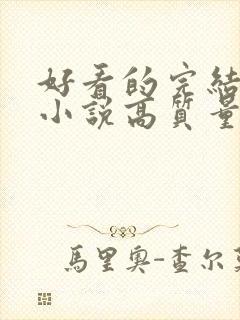 好看的完結
小說高質量
馬里奧-查尔